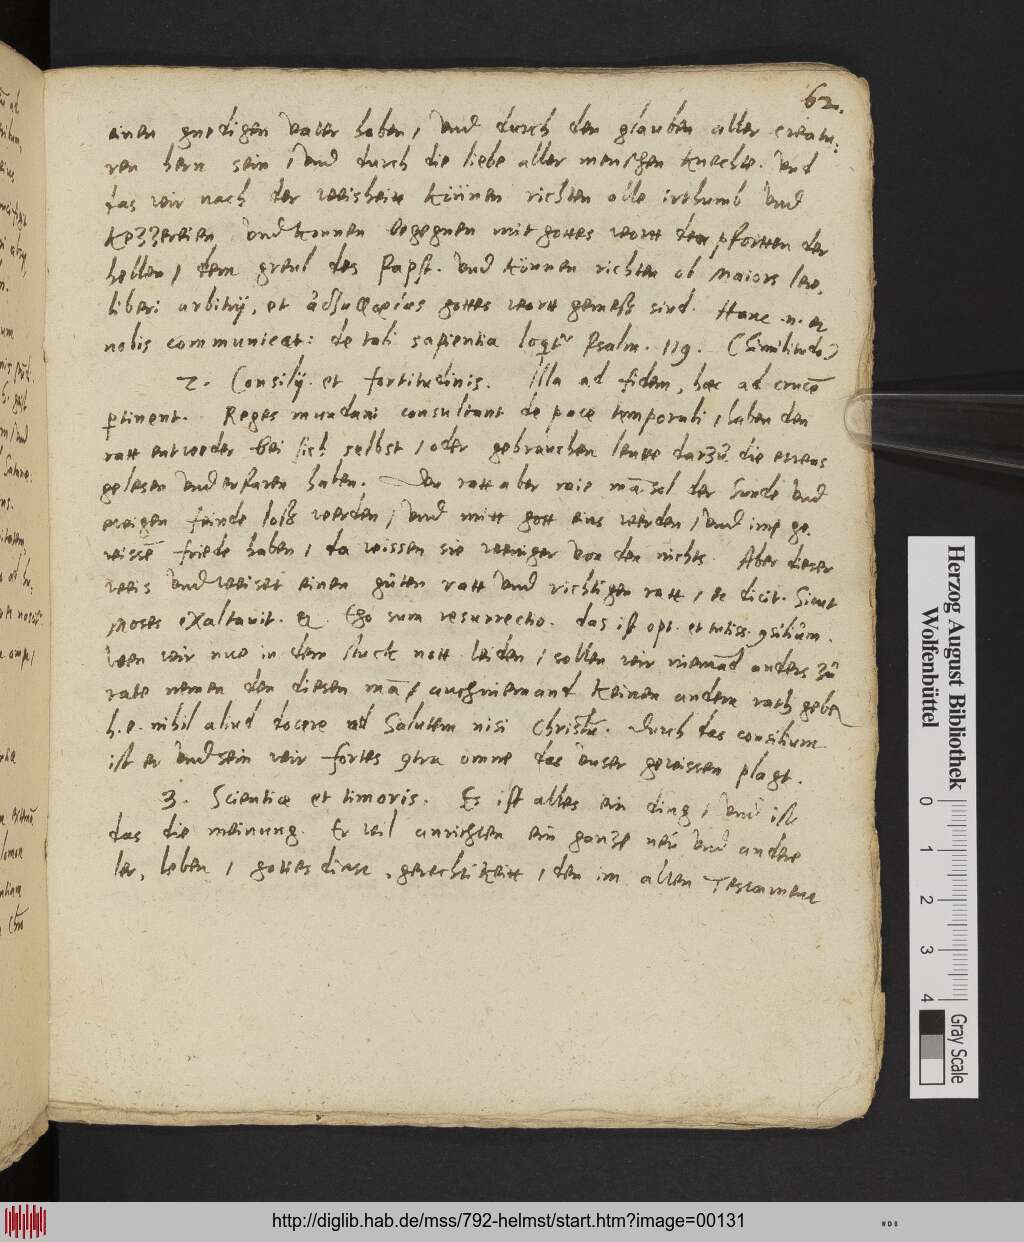 62.
einen gnedigen vater haben, vnd durch den glauben aller creatu:
ren hern sein, vnd durch die liebe aller menschen knechte. vnd
das wir nach der weisheitt können richten alle irthumb vnd
kezzereien vnd konnen begegnen mit gottes wortt den pfortten der
hellen, dem greul des Papst. vnd können richten ob Maiors lere,
liberi arbitrij, et ἀδιαφορίας gottes wortt gemeß sind. Hanc .n. et
nobis communicat: de tali sapientia loqtr Psalm. 119. (Similitudo)
2. Consilij. et fortitudinis. Illa ad fidem, hæc ad crucē
ptinent. Reges mundani consultant de pace temporali, haben den
ratt entweder bei sich selbst, oder gebrauchen leutte darzů, die etwas
gelesen vnd erfaren haben. Den ratt aber wie mā sol der sunde vnd
ewigen feinde loß werden, vnd mitt gott eins werden, vnd im ge:
wissē friede haben, da wissen sie weniger von den nichts. Aber dieser
weis vnd weiset einen gůten ratt vnd richtigen ratt, et dicit. Sicut
Moses exaltauit. et. Ego sum resurrectio. das ist opt. et tutiss. 9silium.
Wen wir nue in dem stuck nott leiden, sollen wir niemād anders zů
rate nemen den diesen mā, auch niemand keinen andern rath geben
h.e. nihil aliud docere ad salutem nisi Christū. durch das consilium
ist er vnd sein wir fortes 9tra omne das vnser gewissen plagt.
3. Scientiæ et timoris. Es ist alles ein ding, vnd ist
das die meinung. Er wil anrichten ein ganze neů vnd andere
ler, leben, gottesdinst, gerechtikeitt, den im alten Testament
Herzog August Bibliothek
Wolfenbüttel
0 1 2 3 4
Gray Scale
http://diglib.hab.de/mss/792-helmst/start.htm?image=00131